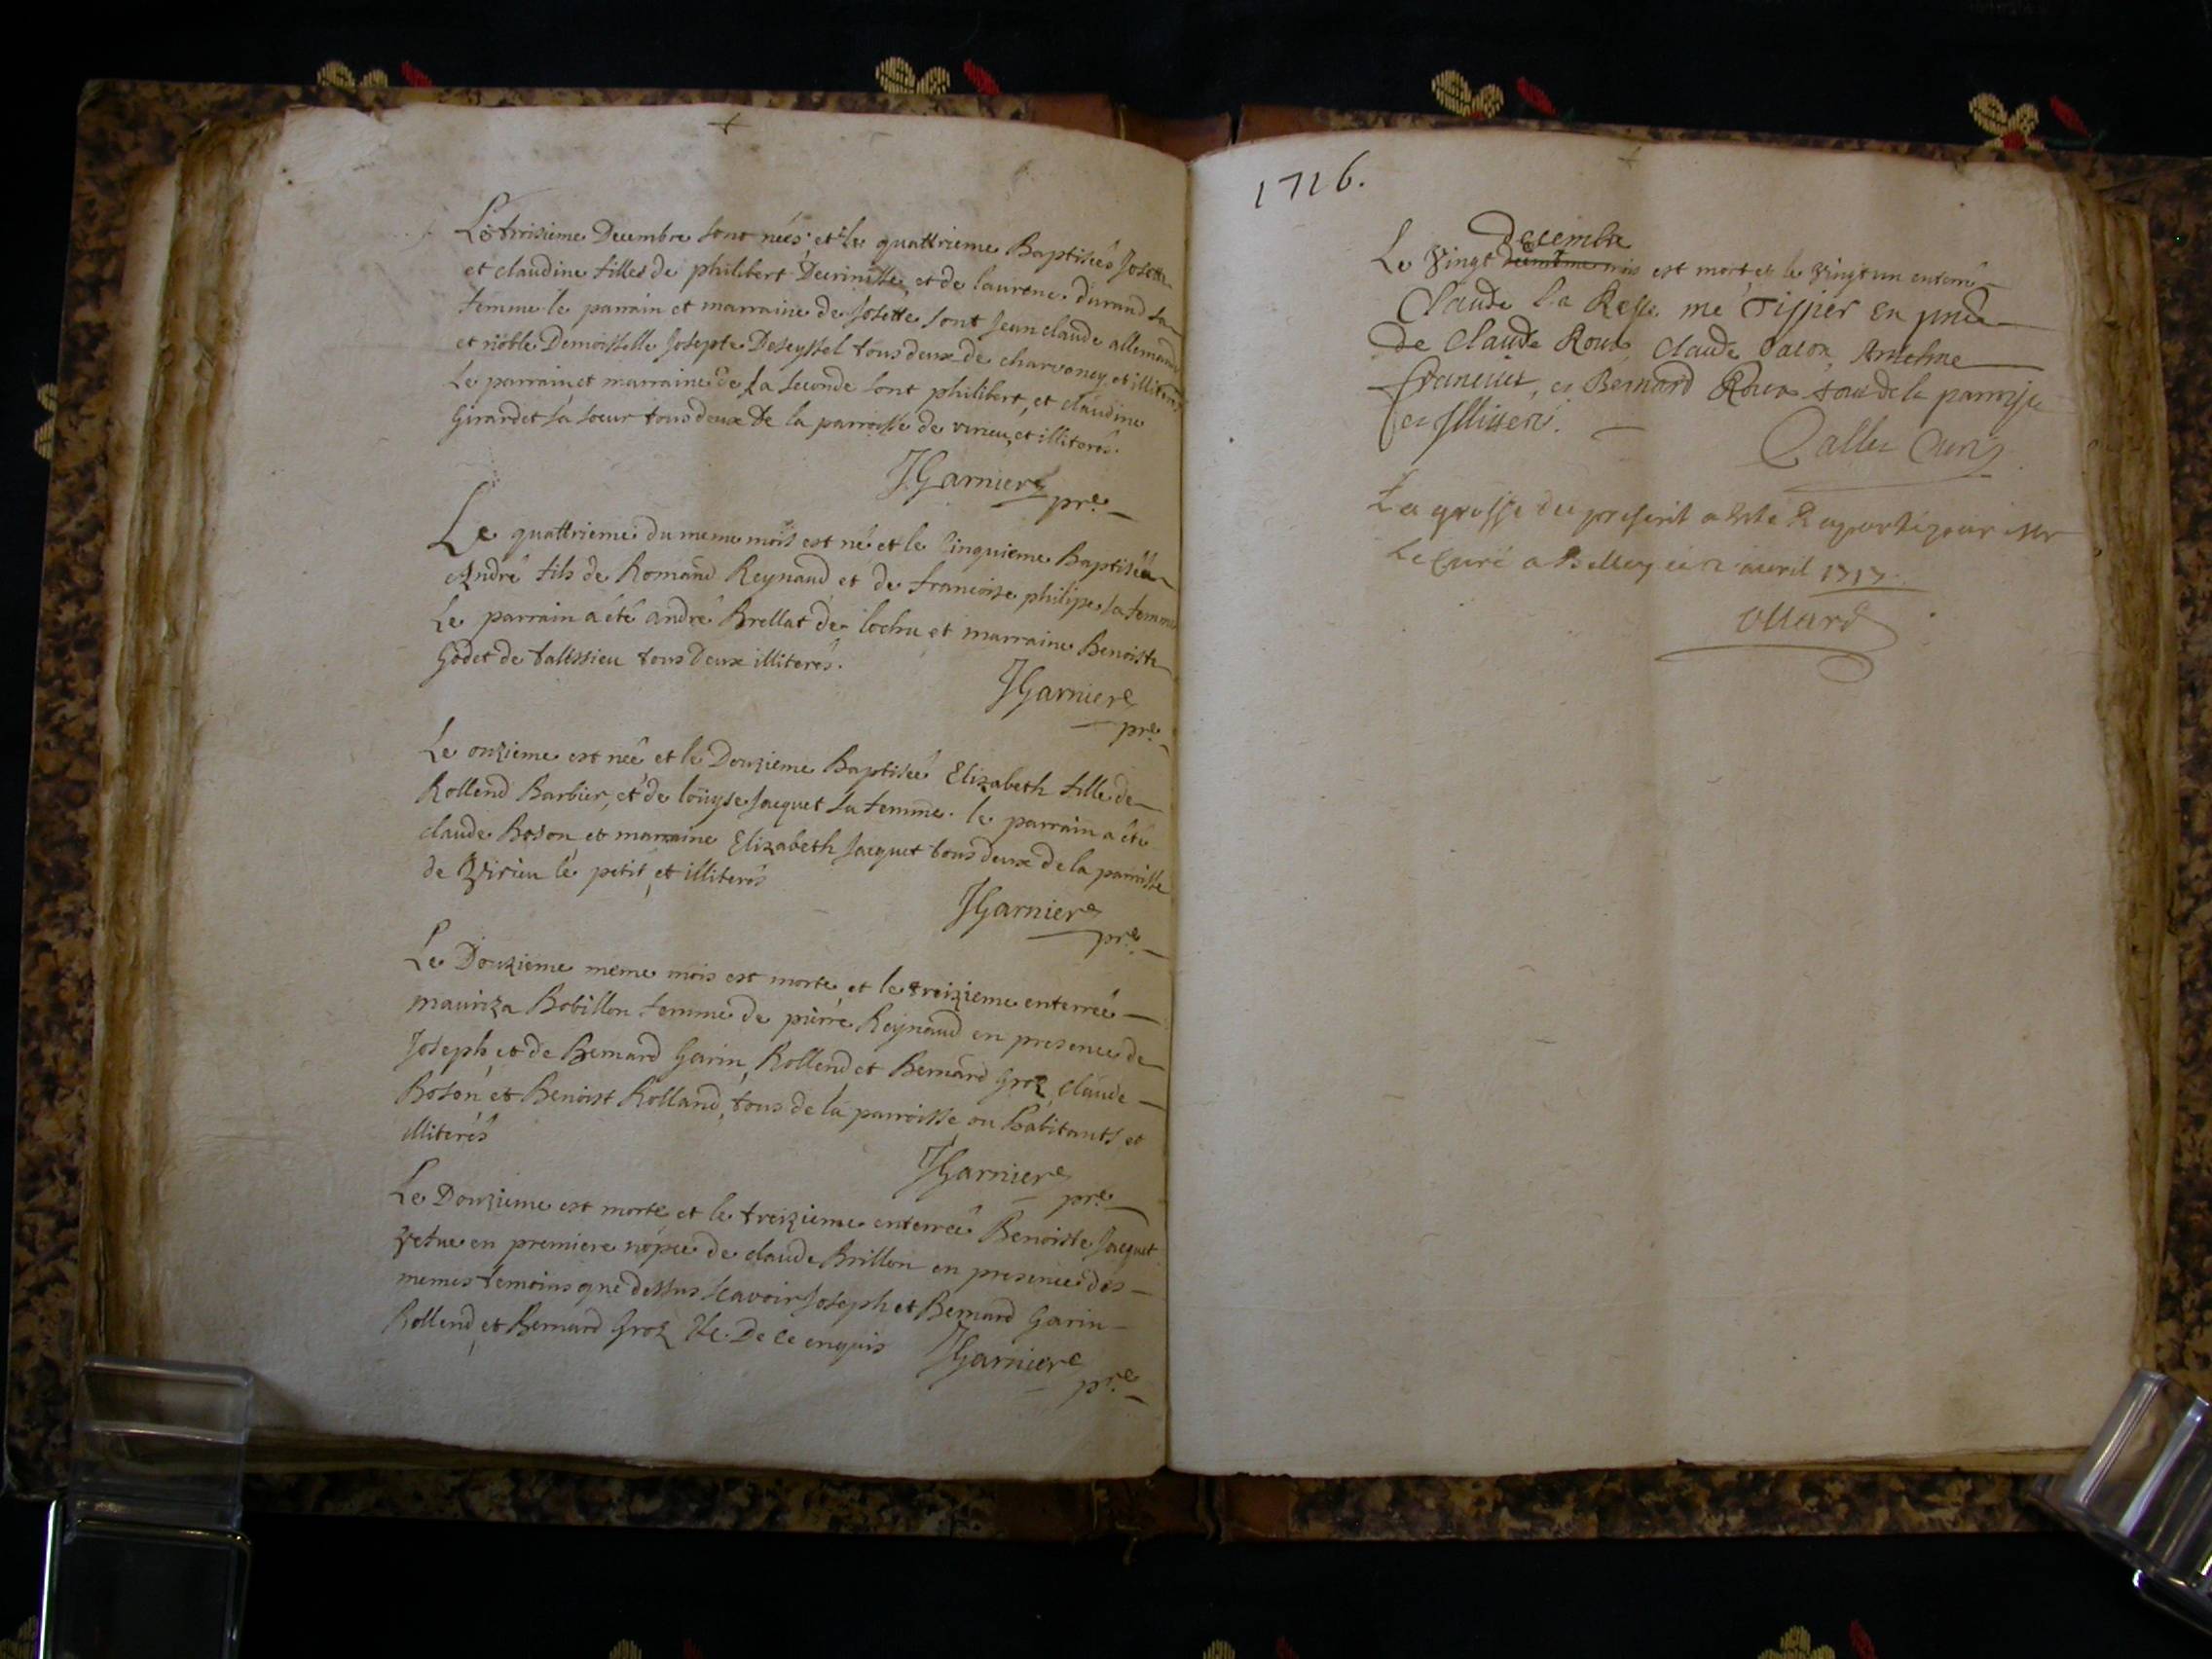 Le troisieme Decembre sont neés, et le quattrieme Baptisées Josette
et claudine filles de philibert Decrinille, et de laurence durand sa
femme le parrain et marraine de Josette sont Jean claude allemand
et noble Demoiselle Josepte Deseyssel tous deux de charvoney et illiterés
Le parrain et marraine de la seconde sont philibert, et claudine
Girardet sa soeur tous deux de la parroisse de virieu, et illiterés.
JGarnier pre.
Le quattrieme du meme mois est né et le cinquieme Baptisé
André fils de Romand Reynaud et de francoise philipe sa femme
Le parrain a été andré Brellat de lochu et marraine Benoiste
Godet de talissieu tous deux illiterés.
JGarnier
pre.
Le onzieme est neé et le Douzieme Baptiseé Elizabeth fille de
Rollend Barbier, et de loüyse Jacquet sa femme. le parrain a été
claude Boson et marraine Elizabeth Jacquet tous deux de la parroisse
de Virieu le petit, et illiterés
JGarnier
pre.
Le Douzieme meme mois est morte et le treizieme enterreé
mauriza Bobillon femme de pierre Reynaud en presence de
Joseph, et de Bernard Garin, Rollend et Bernard Groz, claude
Boson et Benoist Rolland, tous de la parroisse ou habitants, et
illiterés
JGarnier
pre.
Le Douzieme est morte et le treizieme enterreé Benoiste Jacquet
vefve en premiere nopce de claude Brillon en presence des
memes temoins que dessus scavoir Joseph et Bernard Garin
Rollend, et Bernard Groz &c. De ce enquis
JGarnier
pre.
1716.
Decembre
Le Vingt mois est mort, et le vingt un enterré
Claude La Me Tissier En
de Claude Roux Claude Anthelme
et Bernard Roux tous de la parroisse
et Illiteré.
Callet Curé
La grosse du present a este Raportée par Mr
Le Curé a Belley ce 2 avril 1717.